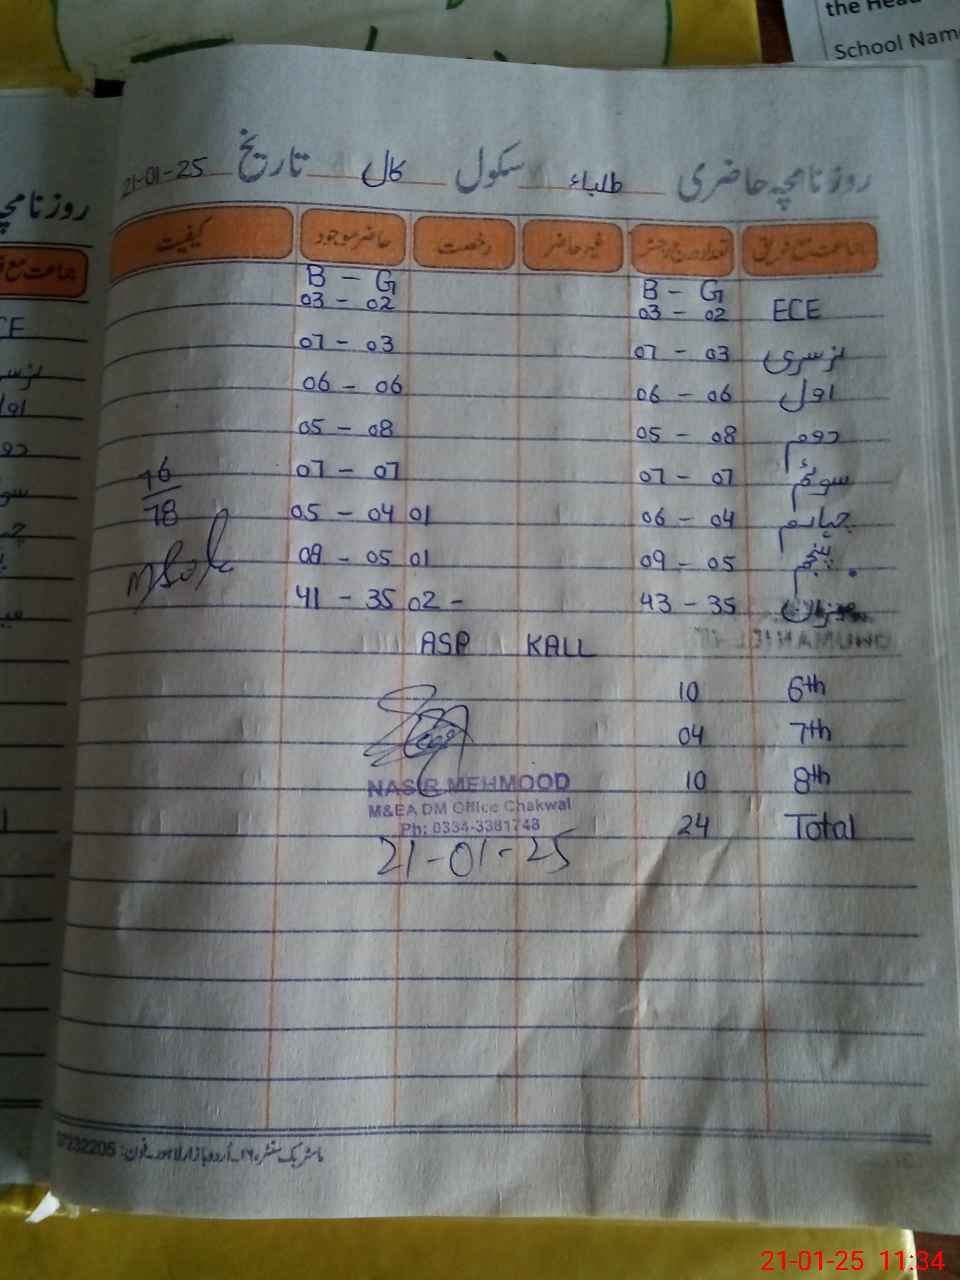 the Head
School Name
روزنامچہ حاضری طلباء سکول کال تاریخ 21-01-25
جماعت مع فریق تعداد درج رجسٹر غیر حاضر رخصت حاضر موجود کیفیت
B - G B - G
ECE 03 - 02 03 - 02
نرسری 07 - 03 07 - 03
اول 06 - 06 06 - 06
دوم 05 - 08 05 - 08
سوئم 07 - 07 07 - 07
76
78
چہارم 06 - 04 01 05 - 04
پنجم 09 - 05 01 08 - 05
میزان 43 - 35 02 - 41 - 35
ASP KALL
6th 10
7th 04
8th 10
Total 24
NASIR MEHMOOD
M&EA DM Office Chakwal
Ph: 0334-3381748
21-01-25
ماسٹر بک سنٹر، ۱۶۔اردو بازار لاہور۔فون: 37232205
21-01-25 11:34